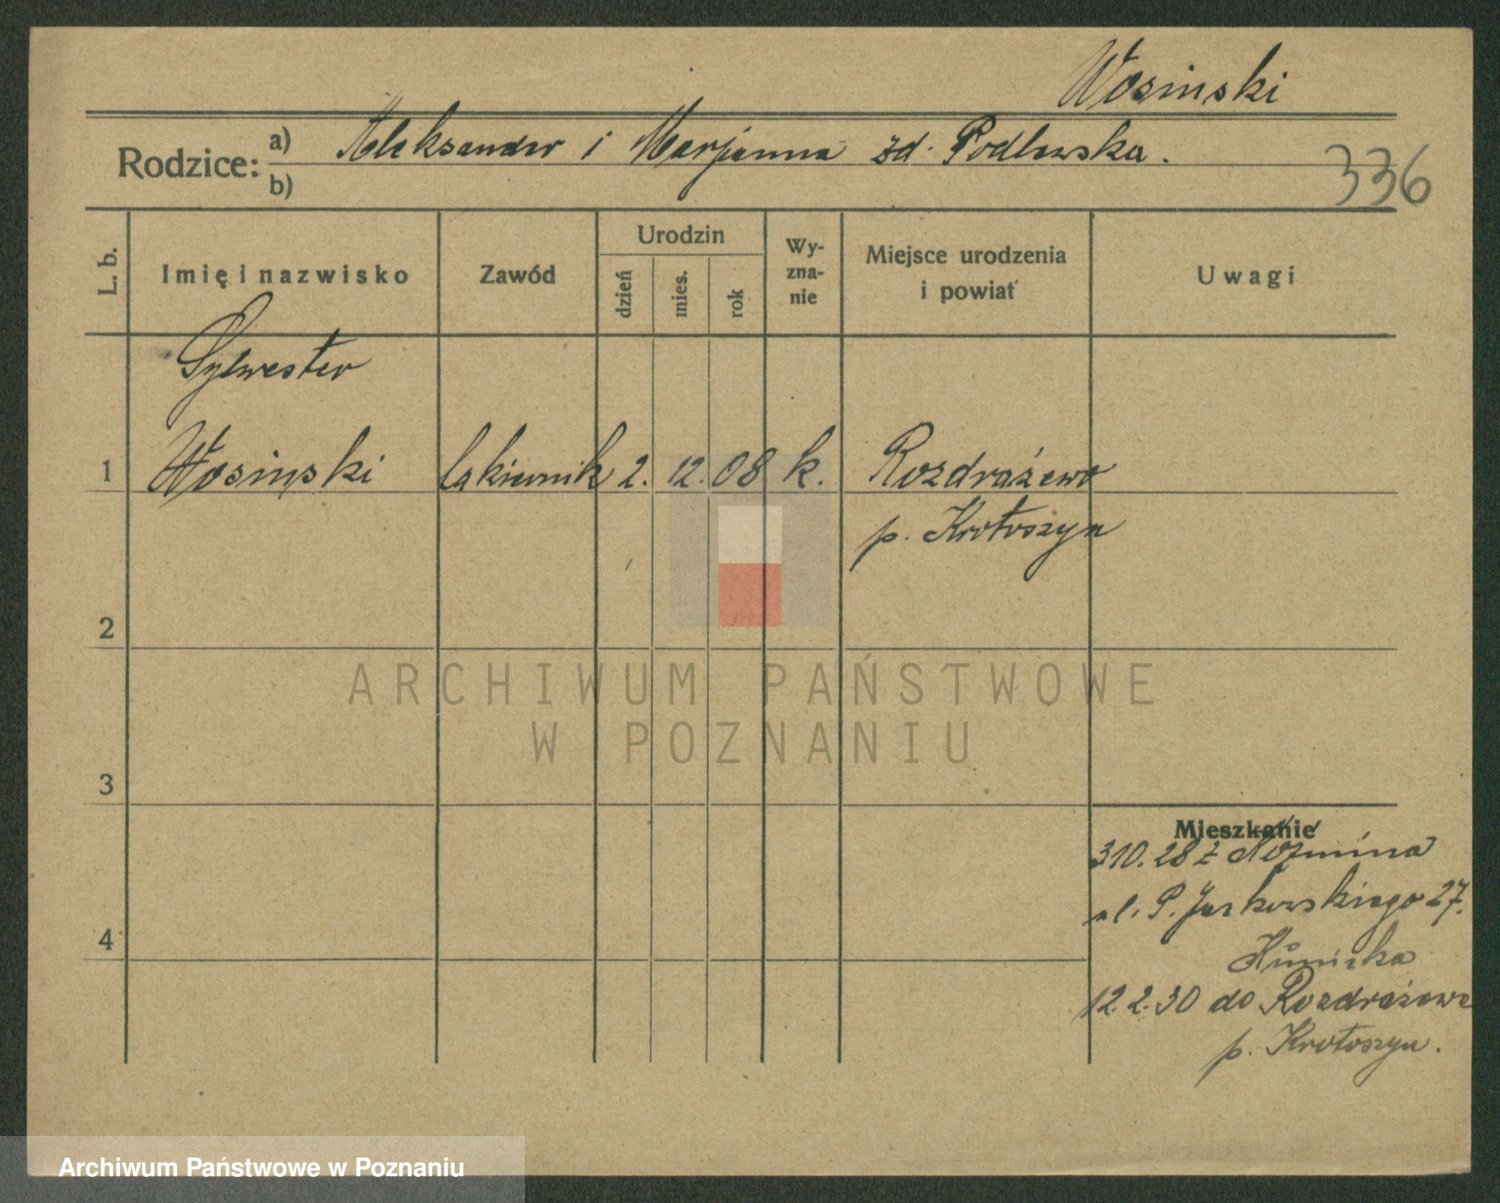 Wosinski
Rodzice: a) Aleksander i Marjanna zd. Podlewska.
b)
336
L. b.
Imię i nazwisko
Zawód
Urodzin
dzień
mies.
rok
Wy-
zna-
nie
Miejsce urodzenia
i powiat
Uwagi
Sylwester
1 Wosinski lakiernik 2. 12. 08 k. Rozdrażewo
p. Krotoszyn
2
3
4
Mieszkanie
310.28 z Koźmina
ul. P. 27.
12.2.30 do Rozdrażewa
p. Krotoszyn.
ARCHIWUM PAŃSTWOWE
W POZNANIU
Archiwum Państwowe w Poznaniu